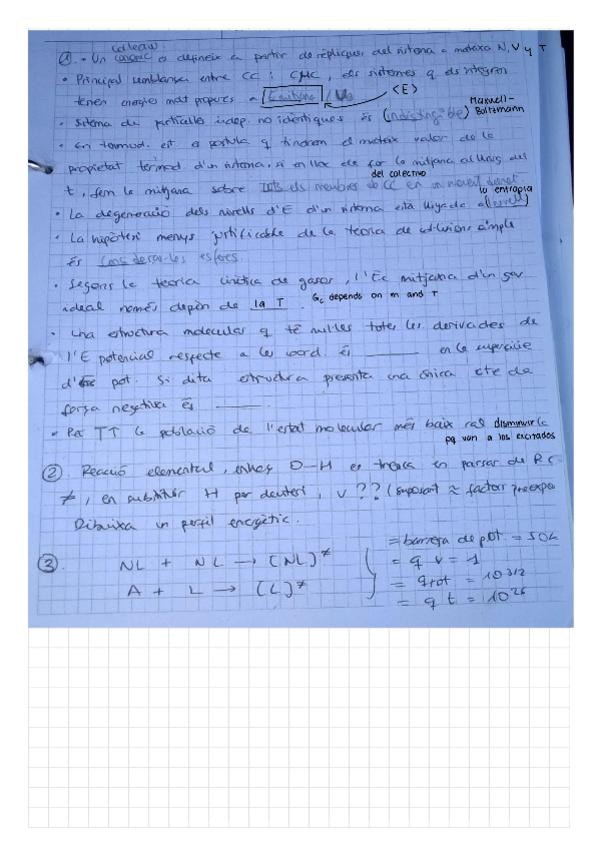 ① · Un canonic es defineix a partir de rèpliques del sistema a mateixa N, V y T
· Principal semblança entre CC i CMC, els sistemes q els integren
tenen energies molt properes a <E>
· Sistema de partícules indep. no idèntiques és (indisting ble) Maxwell-Boltzmann
· En termod. est es postula q tindrem el mateix valor de la
propietat termod. d'un sistema, si en lloc de fer la mitjana al llarg del
t, fem la mitjana sobre tots els membres del CC en un moment donat. del colectivo
· La degeneració dels nivells d'E d'un sistema està lligada a la entropia
· La hipòtesi menys justificable de la teoria de col·lisions simple
és considerar-les esferes.
· Segons la teoria cinètica de gasos, l'Ec mitjana d'un gas
ideal només depèn de la T. Gc depends on m and T
· Una estructura molecular q té nul·les totes les derivades de
l'E potencial respecte a les coord. és ______ en la superfície
d'ener pot. Si dita estructura presenta una única cte de
força negativa és ______.
· Per T↑↑ la població de l'estat molecular més baix cal disminuir
pq van a los excitados
② Reacció elemental, enllaç O-H es trenca en passar de R a
≠, en substituir H per deuteri, v?? (suposant ≈ factor preexpo
Dibuixa un perfil energètic.
③ NL + NL → (NL)≠
A + L → (L)≠
= barrera de pot. = 50
= q v = 1
= q rot = 10^3/2
= q t = 10^26